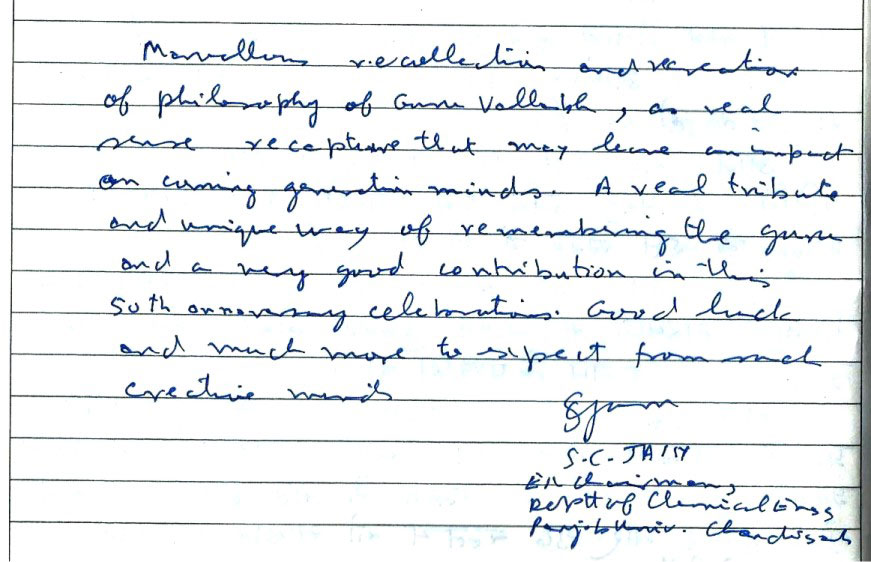 Marvellous recollection and recreation
of philosophy of Guru Vallabh, as real
sense recapture that may leave an impact
on coming generation minds. A real tribute
and unique way of remembering the guru
and a very good contribution in this
50th anniversary celebrations. Good luck
and much more to expect from such
creative minds
S. C. JAIN
Ex Chairman,
Deptt of Chemical Engg
Panjab Univ. Chandigarh